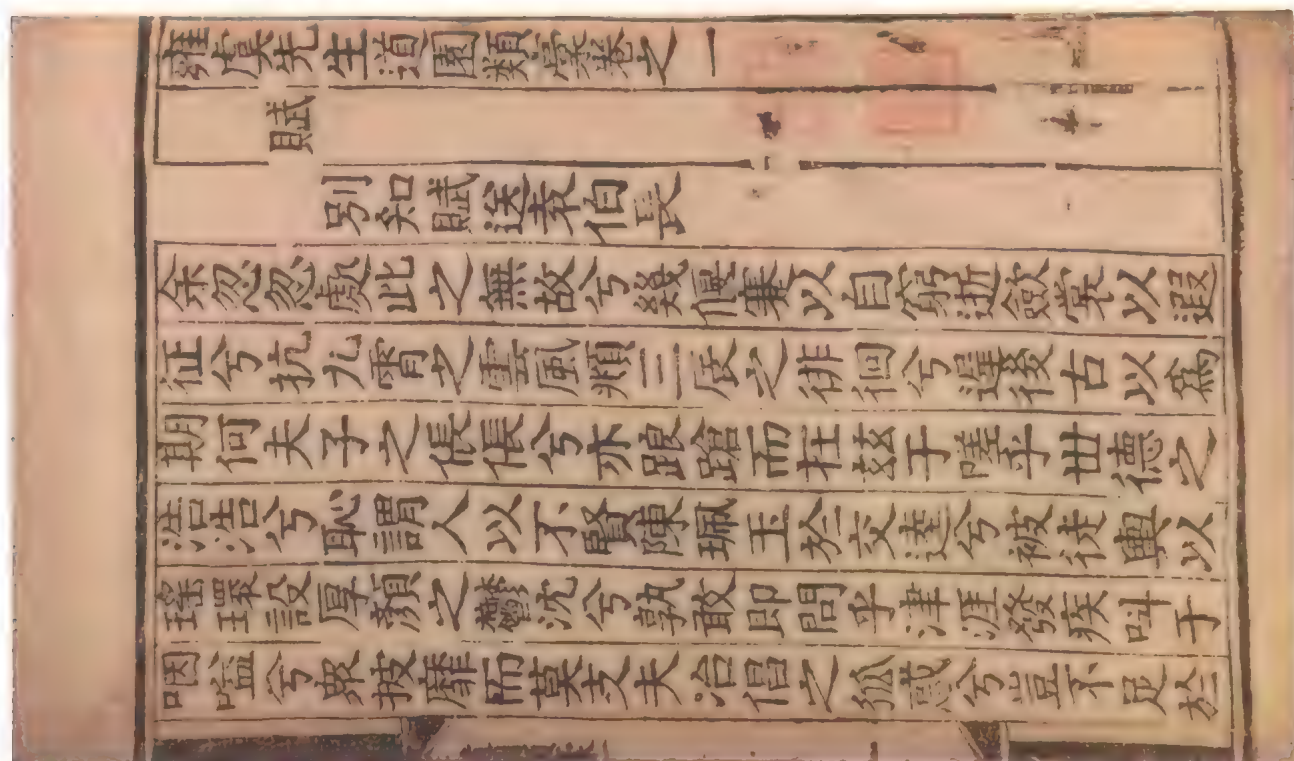 雍虞先生道園類藁卷之一
賦
別知賦送袁伯長
余忽忽處此之無故兮幾以自窮逝斂裳以遐
征兮抗九霄之雲風頫三辰之徘徊兮遲後古以爲
期何夫子之倀倀兮亦踉蹡而在兹于嗟乎世德之
浩浩兮恥謂人以不賢陳珮玉於交逵兮被徒輿以
瑤環設厚顏之鬱沈兮孰敢即問乎津涯發疾呌于
咽嗌兮衆披靡而莫支夫冶倡之狐惑兮豈不足於